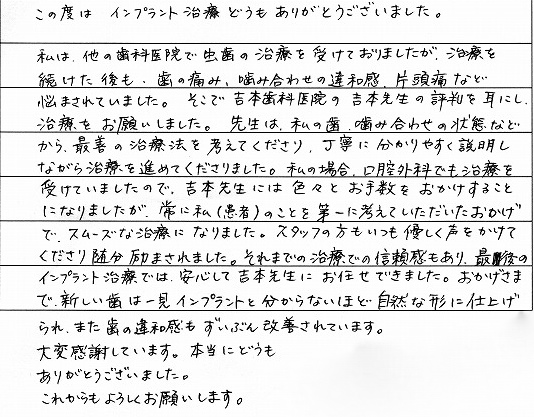 この度は インプラント治療 どうも ありがとうございました。
私は、他の歯科医院で虫歯の治療を受けておりましたが、治療を
続けた後も、歯の痛み、噛み合わせの違和感、片頭痛など
悩まされていました。 そこで吉本歯科医院の吉本先生の評判を耳にし、
治療をお願いしました。 先生は、私の歯、噛み合わせの状態など
から、最善の治療法を考えてくださり、丁寧に分かりやすく説明し
ながら治療を進めてくださりました。私の場合、口腔外科でも治療を
受けていましたので、吉本先生には色々とお手数をおかけすること
になりましたが、常に私(患者)のことを第一に考えていただいたおかげ
で、スムーズな治療になりました。スタッフの方もいつも優しく声をかけて
くださり随分励まされました。それまでの治療での信頼感もあり、最後の
インプラント治療では、安心して吉本先生にお任せできました。おかげさま
で、新しい歯は一見インプラントと分からないほど自然な形に仕上げ
られ、また歯の違和感もずいぶん改善されています。
大変感謝しています。本当にどうも
ありがとうございました。
これからもよろしくお願いします。